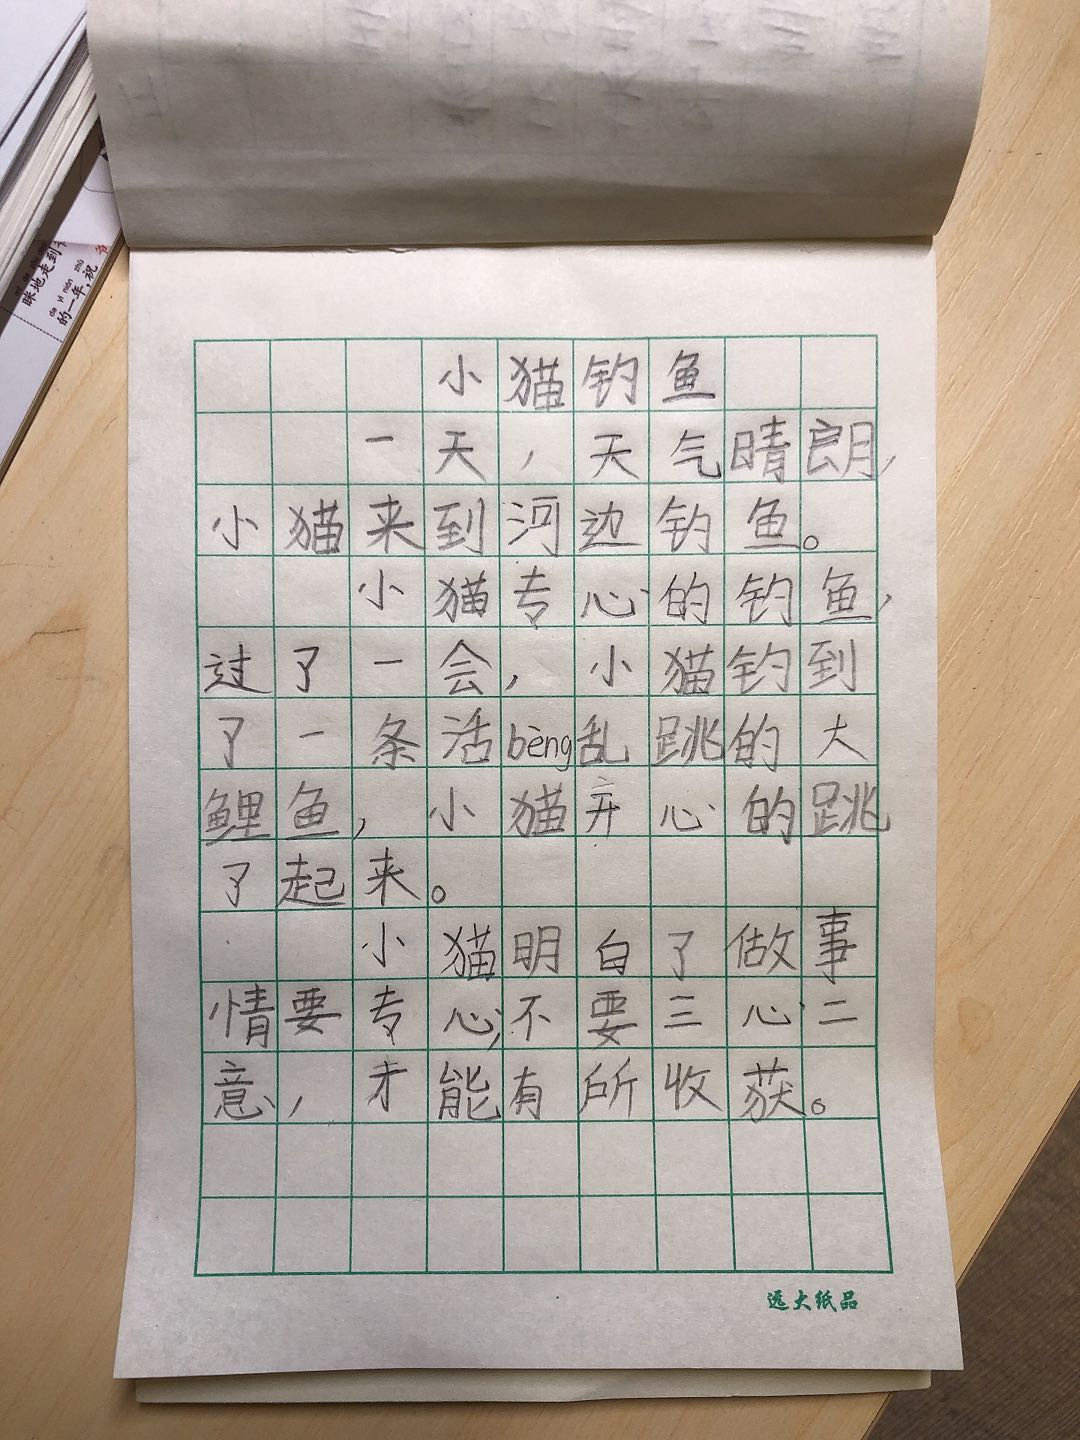 眯地走到
dà yì nián zhù
的一年,祝
小猫钓鱼
一天,天气晴朗,
小猫来到河边钓鱼。
小猫专心的钓鱼,
过了一会,小猫钓到
了一条活bèng乱跳的大
鲤鱼,小猫开心的跳
了起来。
小猫明白了做事
情要专心,不要三心二
意,才能有所收获。
远大纸品